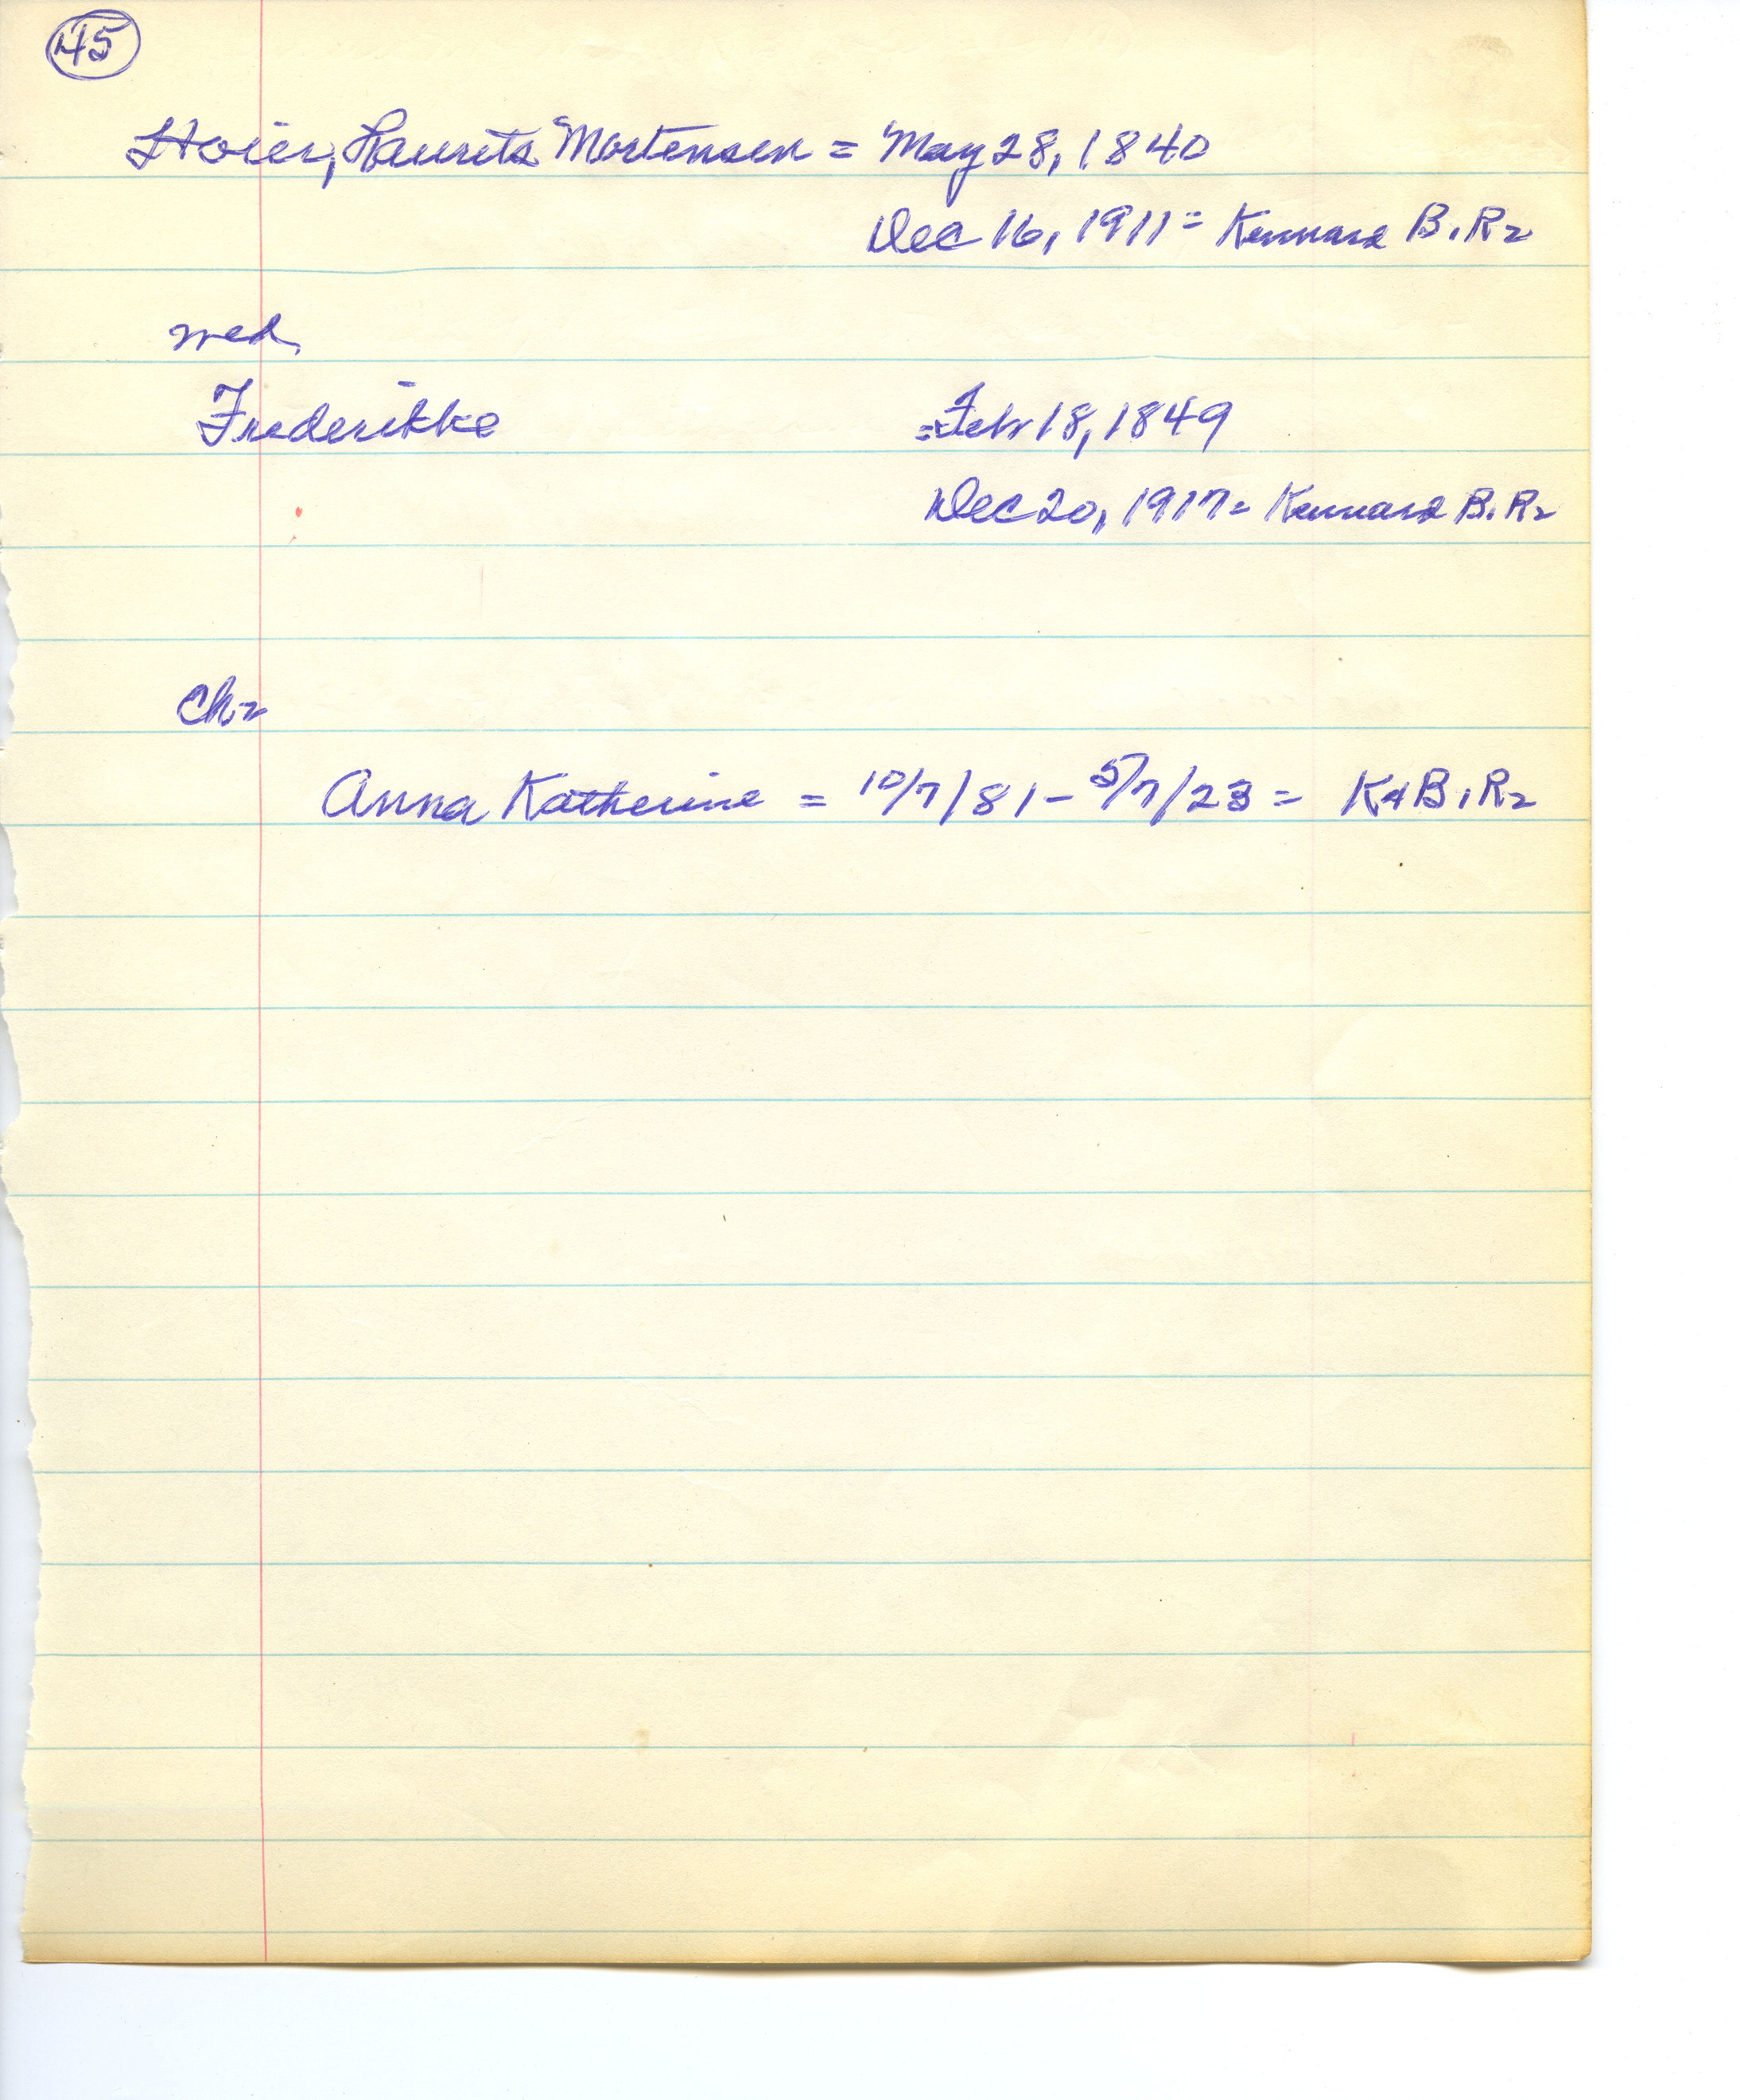 45
Hoier, Laurits Mortensen = May 28, 1840
Dec 16, 1911 = Kennard B.R.
wed.
Frederikke = Feb 18, 1849
Dec 20, 1917 = Kennard B.R.
Ch.
Anna Katherine = 10/7/81 - 5/7/23 = K4B.R.